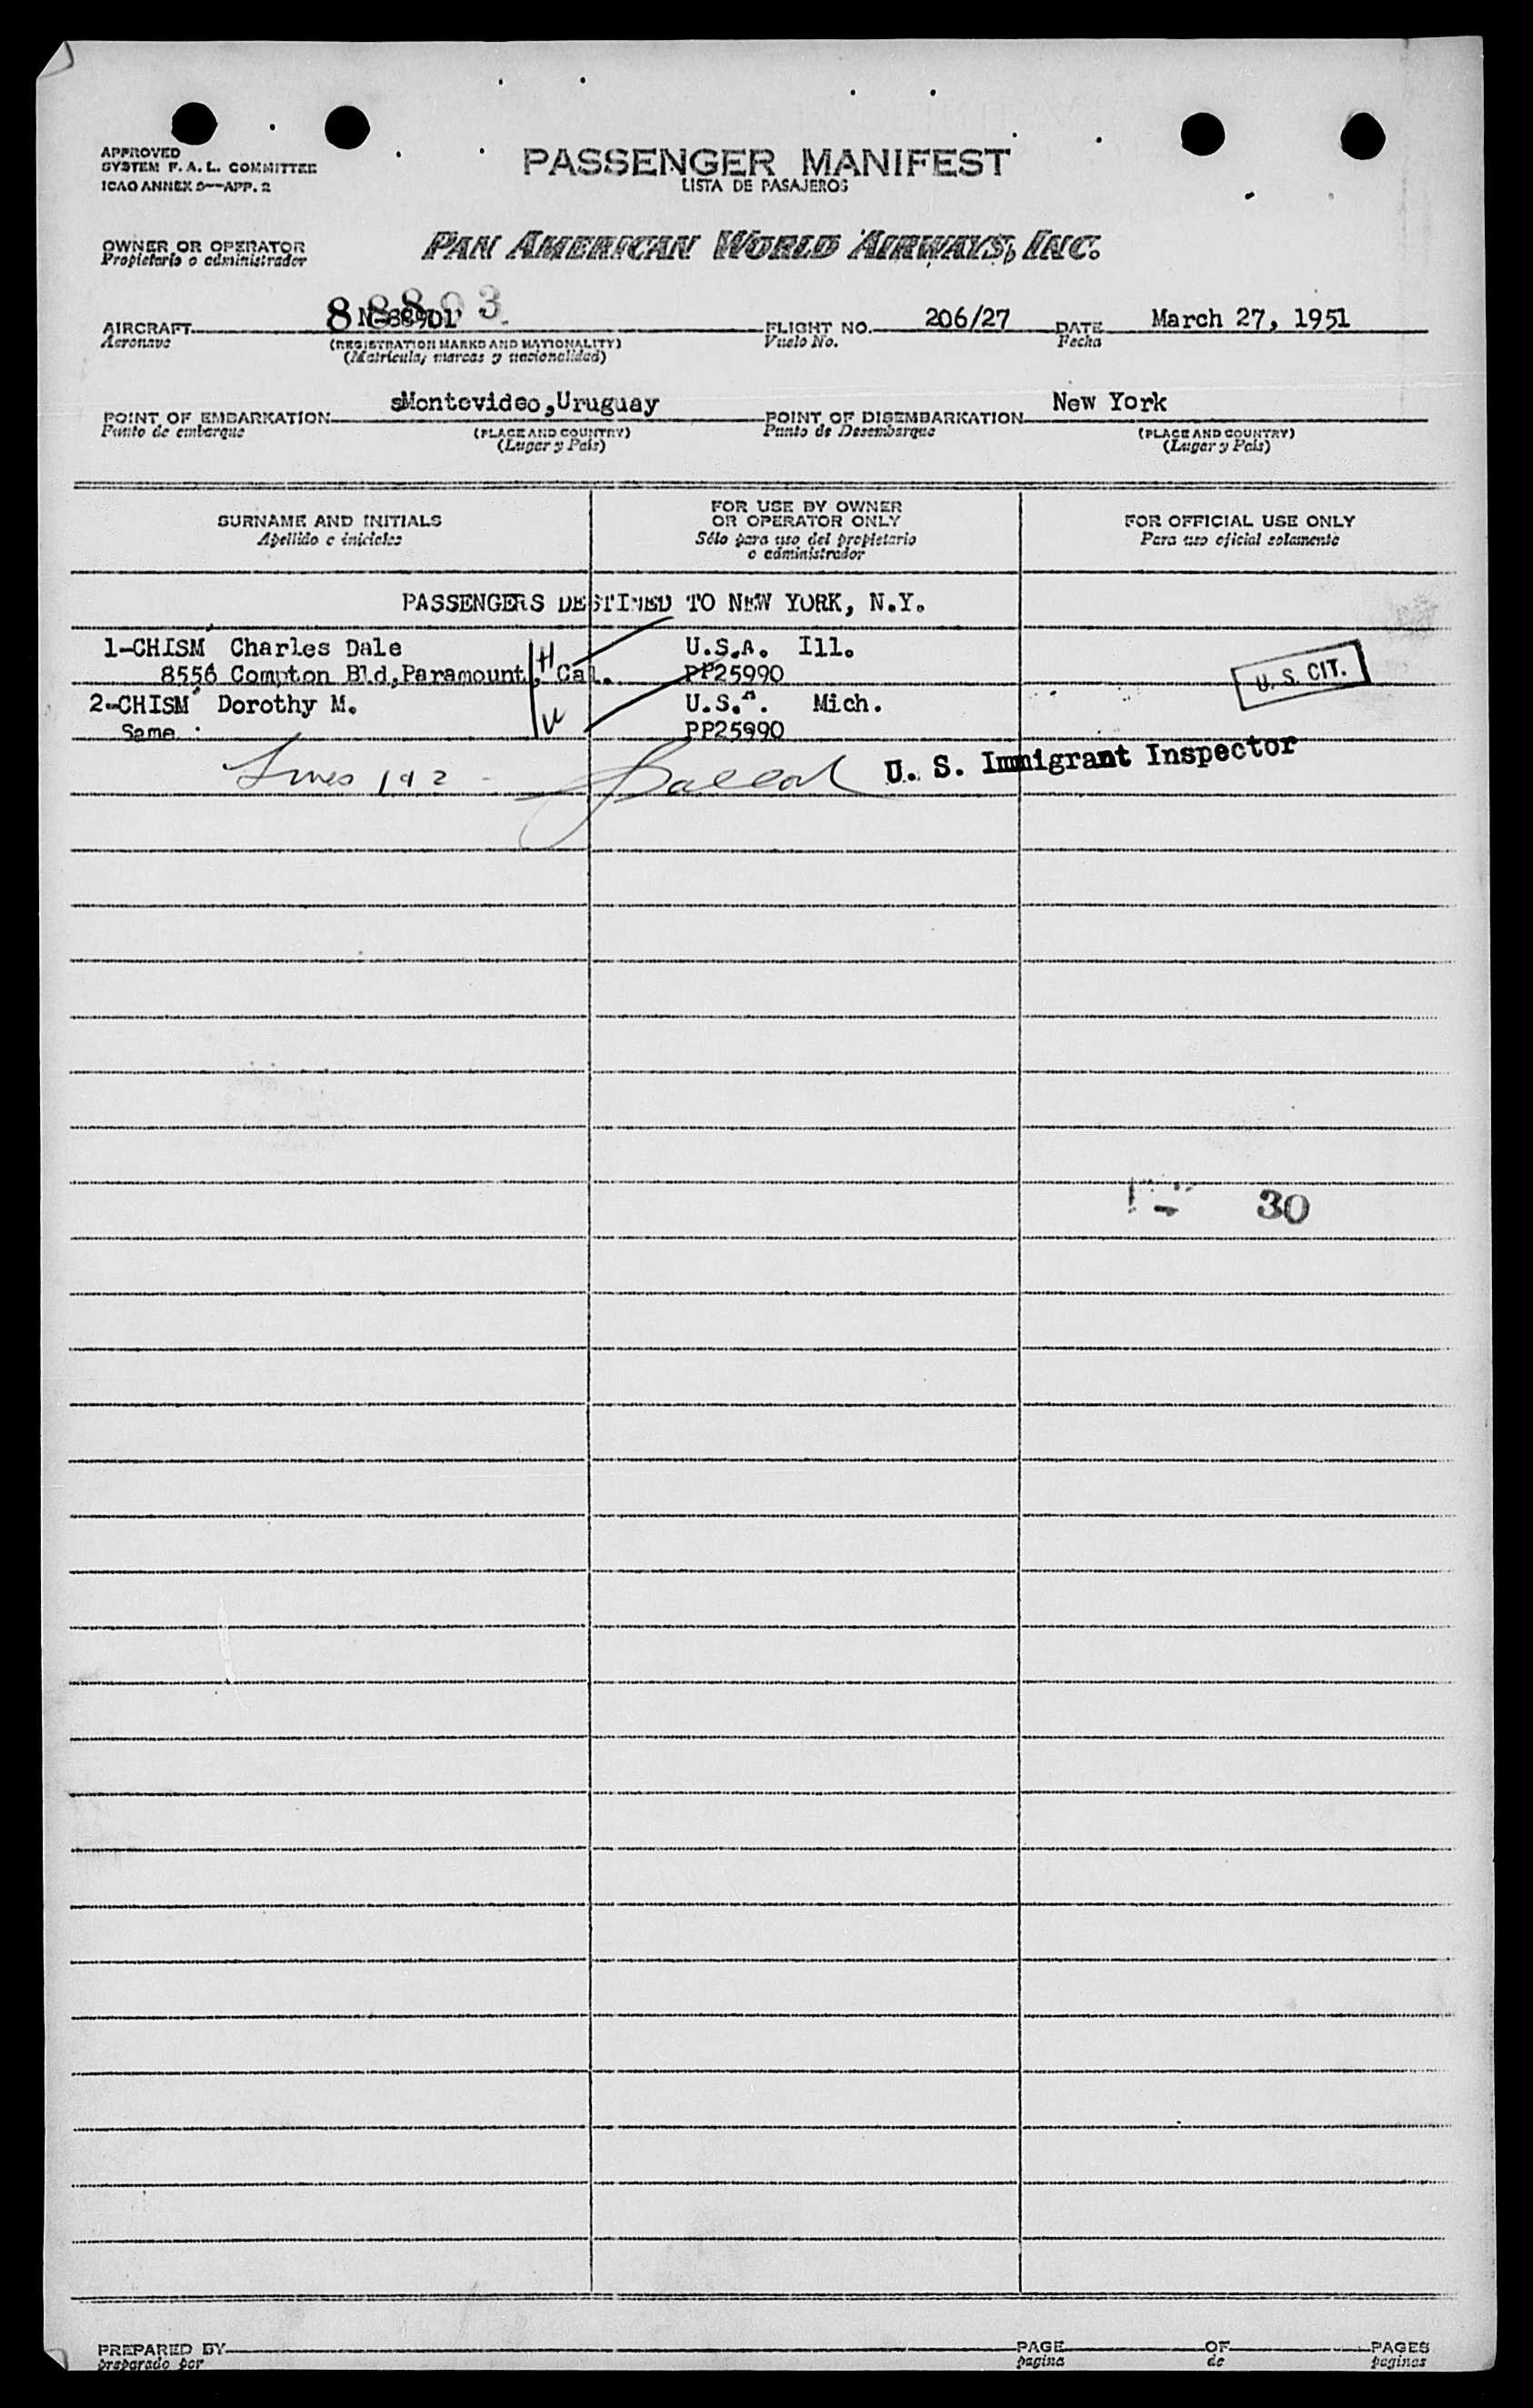 APPROVED
SYSTEM F. A. L. COMMITTEE
ICAO ANNEX 9—APP. 2
PASSENGER MANIFEST
LISTA DE PASAJEROS
OWNER OR OPERATOR
Propietario o administrador
PAN AMERICAN WORLD AIRWAYS, INC.
AIRCRAFT 88803 FLIGHT NO. 206/27 DATE March 27, 1951
Aeronave (REGISTRATION MARKS AND NATIONALITY) Vuelo No. Fecha
(Matrícula, marcas y nacionalidad)
POINT OF EMBARKATION sMontevideo,Uruguay POINT OF DISEMBARKATION New York
Punto de embarque (PLACE AND COUNTRY) Punto de Desembarque (PLACE AND COUNTRY)
(Lugar y País) (Lugar y País)
SURNAME AND INITIALS
Apellido e iniciales
FOR USE BY OWNER
OR OPERATOR ONLY
Sólo para uso del propietario
o administrador
FOR OFFICIAL USE ONLY
Para uso oficial solamente
PASSENGERS DESTINED TO NEW YORK, N.Y.
1-CHISM Charles Dale H U.S.A. Ill.
8556 Compton Bld,Paramount, Cal. PP25990
U. S. CIT.
2-CHISM Dorothy M. W U.S.A. Mich.
Same PP25990
Lines 1 9 2 U. S. Immigrant Inspector
30
PREPARED BY PAGE OF PAGES
preparado por pagina de paginas